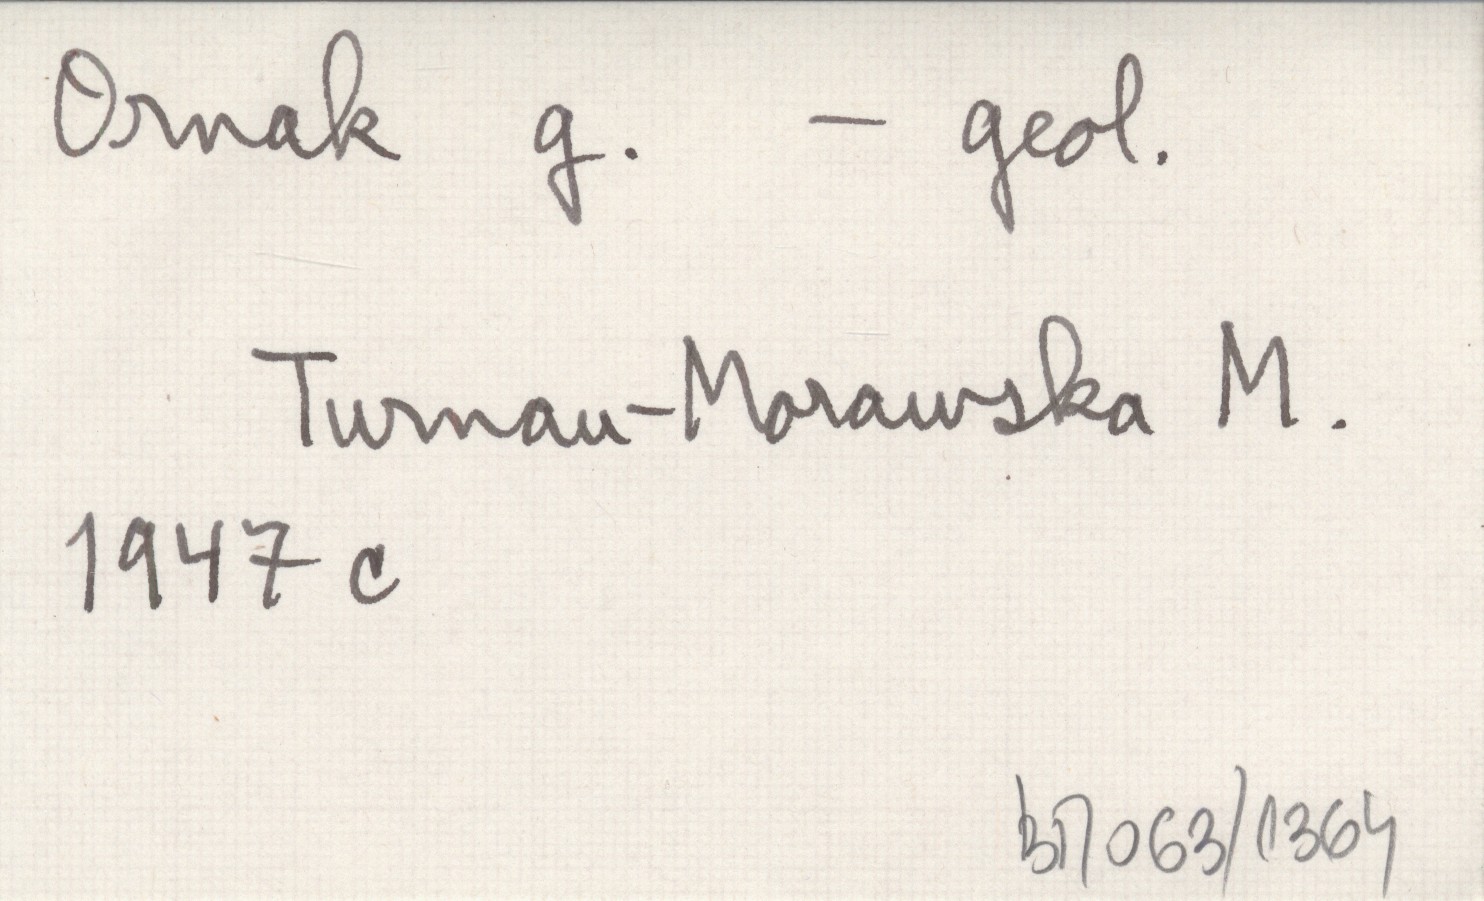 Ornak g. – geol.
Turnau-Morawska M.
1947 c
063/1364